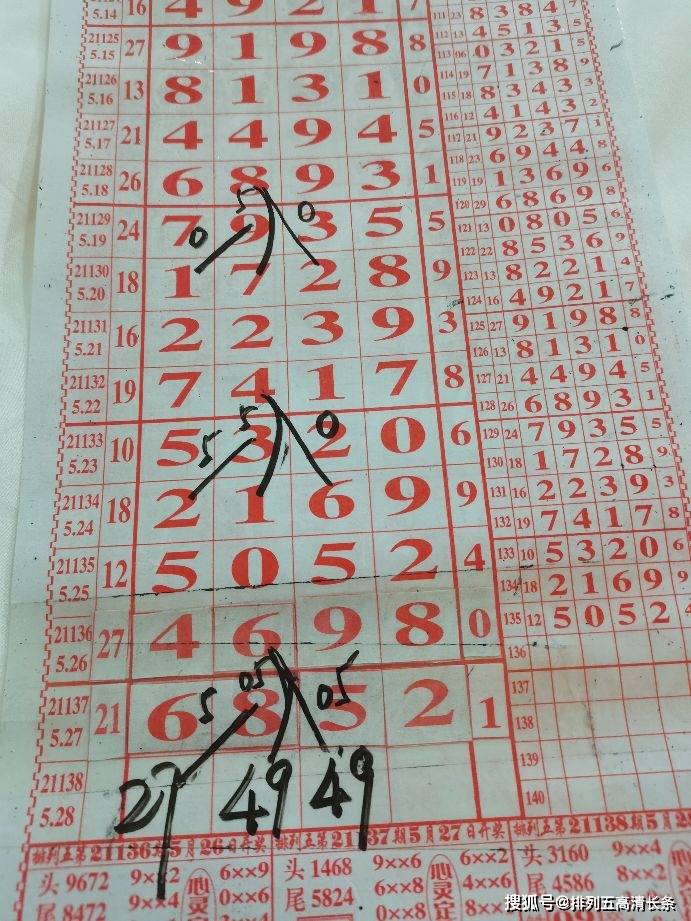 5.14 16 4 9 2 1 7
21125 5.15 27 9 1 9 8 8
21126 5.16 13 8 1 3 1 0
21127 5.17 21 4 4 9 4 5
21128 5.18 26 6 8 9 3 1
5 0
21129 5.19 24 7 9 3 5 5
0
21130 5.20 18 1 7 2 8 9
21131 5.21 16 2 2 3 9 3
21132 5.22 19 7 4 1 7 8
5 0
21133 5.23 10 5 3 2 0 6
5
21134 5.24 18 2 1 6 9 9
21135 5.25 12 5 0 5 2 4
21136 5.26 27 4 6 9 8 0
05 05
21137 5.27 21 6 8 5 2 1
5
21138 5.28
27 49 49
111 23 8 3 8 4 7
112 13 4 5 1 3 5
113 06 0 3 2 1 5
114 19 7 1 3 8 9
115 18 8 3 4 3 3
116 12 4 1 4 3 2
112 21 9 2 3 7 1
118 23 6 9 4 4 8
119 19 1 3 6 9 6
120 29 6 8 6 9 8
121 13 0 8 0 5 6
122 22 8 5 3 6 9
123 13 8 2 2 1 4
124 16 4 9 2 1 7
125 27 9 1 9 8 8
126 13 8 1 3 1 0
127 21 4 4 9 4 5
128 26 6 8 9 3 1
129 24 7 9 3 5 5
130 18 1 7 2 8 9
131 16 2 2 3 9 3
132 19 7 4 1 7 8
133 10 5 3 2 0 6
134 18 2 1 6 9 9
135 12 5 0 5 2 4
136
137
138
139
140
排列五第21136期5月26日开奖
头 9672 6××9
尾 8472 9××4 0××6
心灵
排列五第21137期5月27日开奖
头 1468 9××6 6××2
尾 5824 6××8 4××6
心灵
排列五第21138期5月2
头 3160 9××4
尾 4586 8××2
搜狐号@排列五高清长条